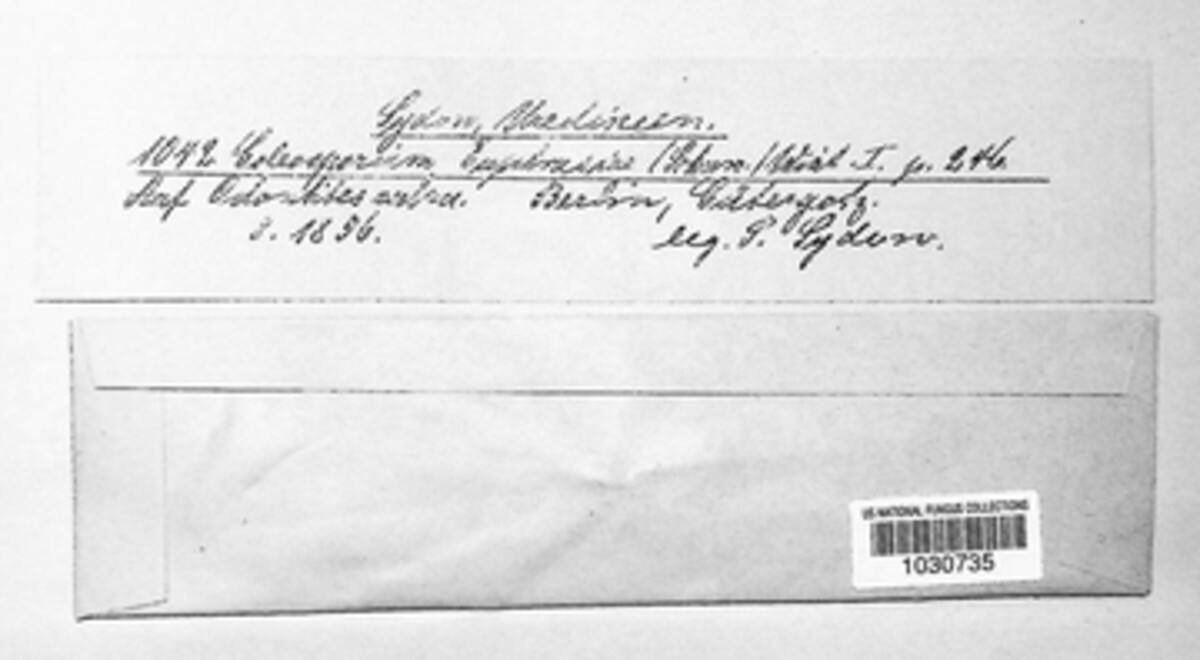 Sydow, Uredineen.
1042 Coleosporium Euphrasiae (Schum.) Wint I. p. 246.
Auf Odontites rubra. Berlin, Gütergotz.
8. 1896.
leg. P. Sydow.
US NATIONAL FUNGUS COLLECTIONS
1030735